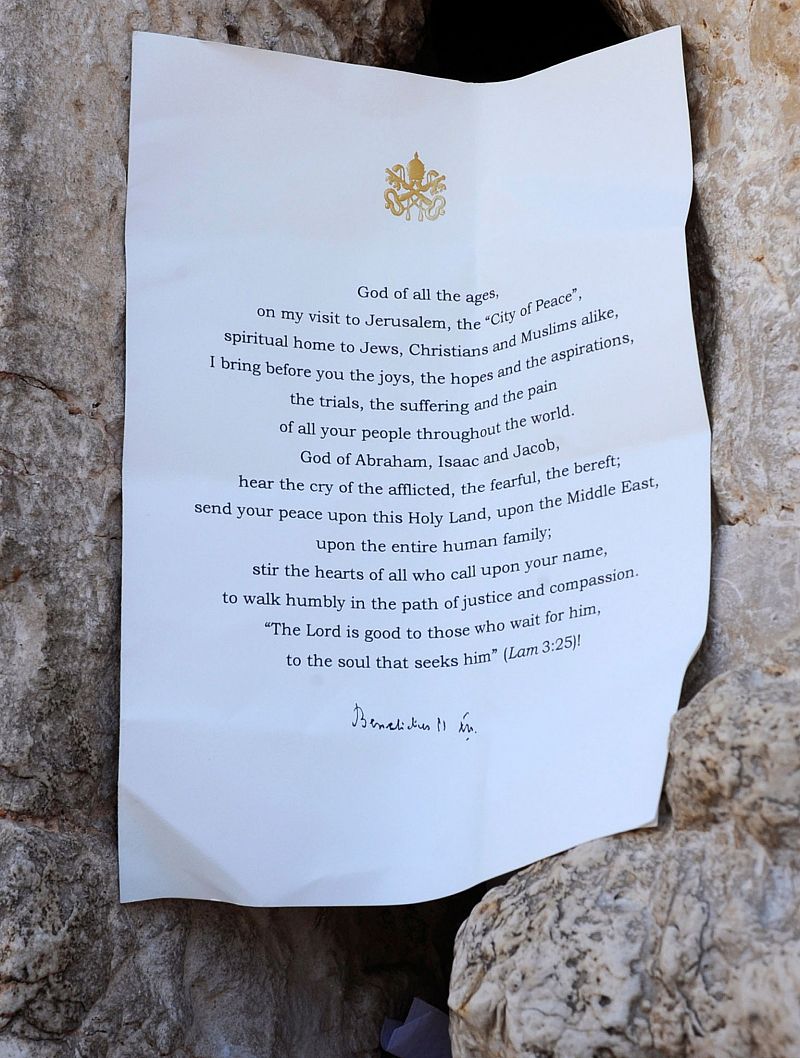 God of all the ages,
on my visit to Jerusalem, the “City of Peace”,
spiritual home to Jews, Christians and Muslims alike,
I bring before you the joys, the hopes and the aspirations,
the trials, the suffering and the pain
of all your people throughout the world.
God of Abraham, Isaac and Jacob,
hear the cry of the afflicted, the fearful, the bereft;
send your peace upon this Holy Land, upon the Middle East,
upon the entire human family;
stir the hearts of all who call upon your name,
to walk humbly in the path of justice and compassion.
“The Lord is good to those who wait for him,
to the soul that seeks him” (Lam 3:25)!
Benedictus